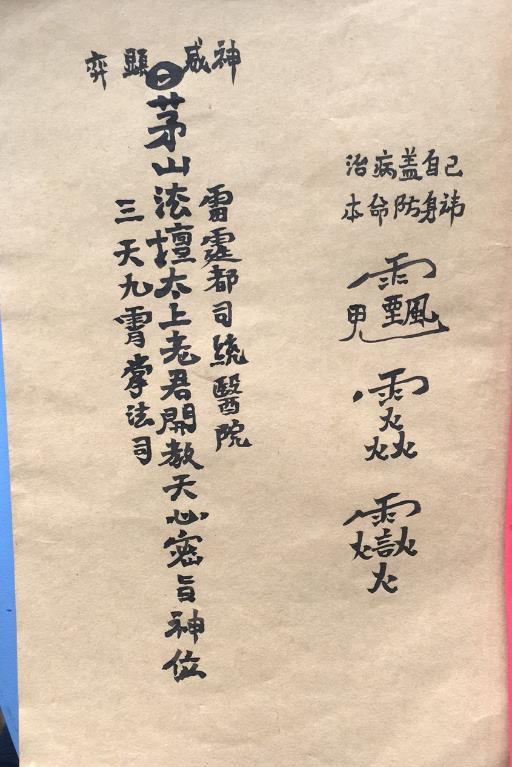 治病盖自己
本命防身祎
神威顯弈
雷霆都司統醫院
茅山法壇太上老君開教天心密旨神位
三天九霄掌法司